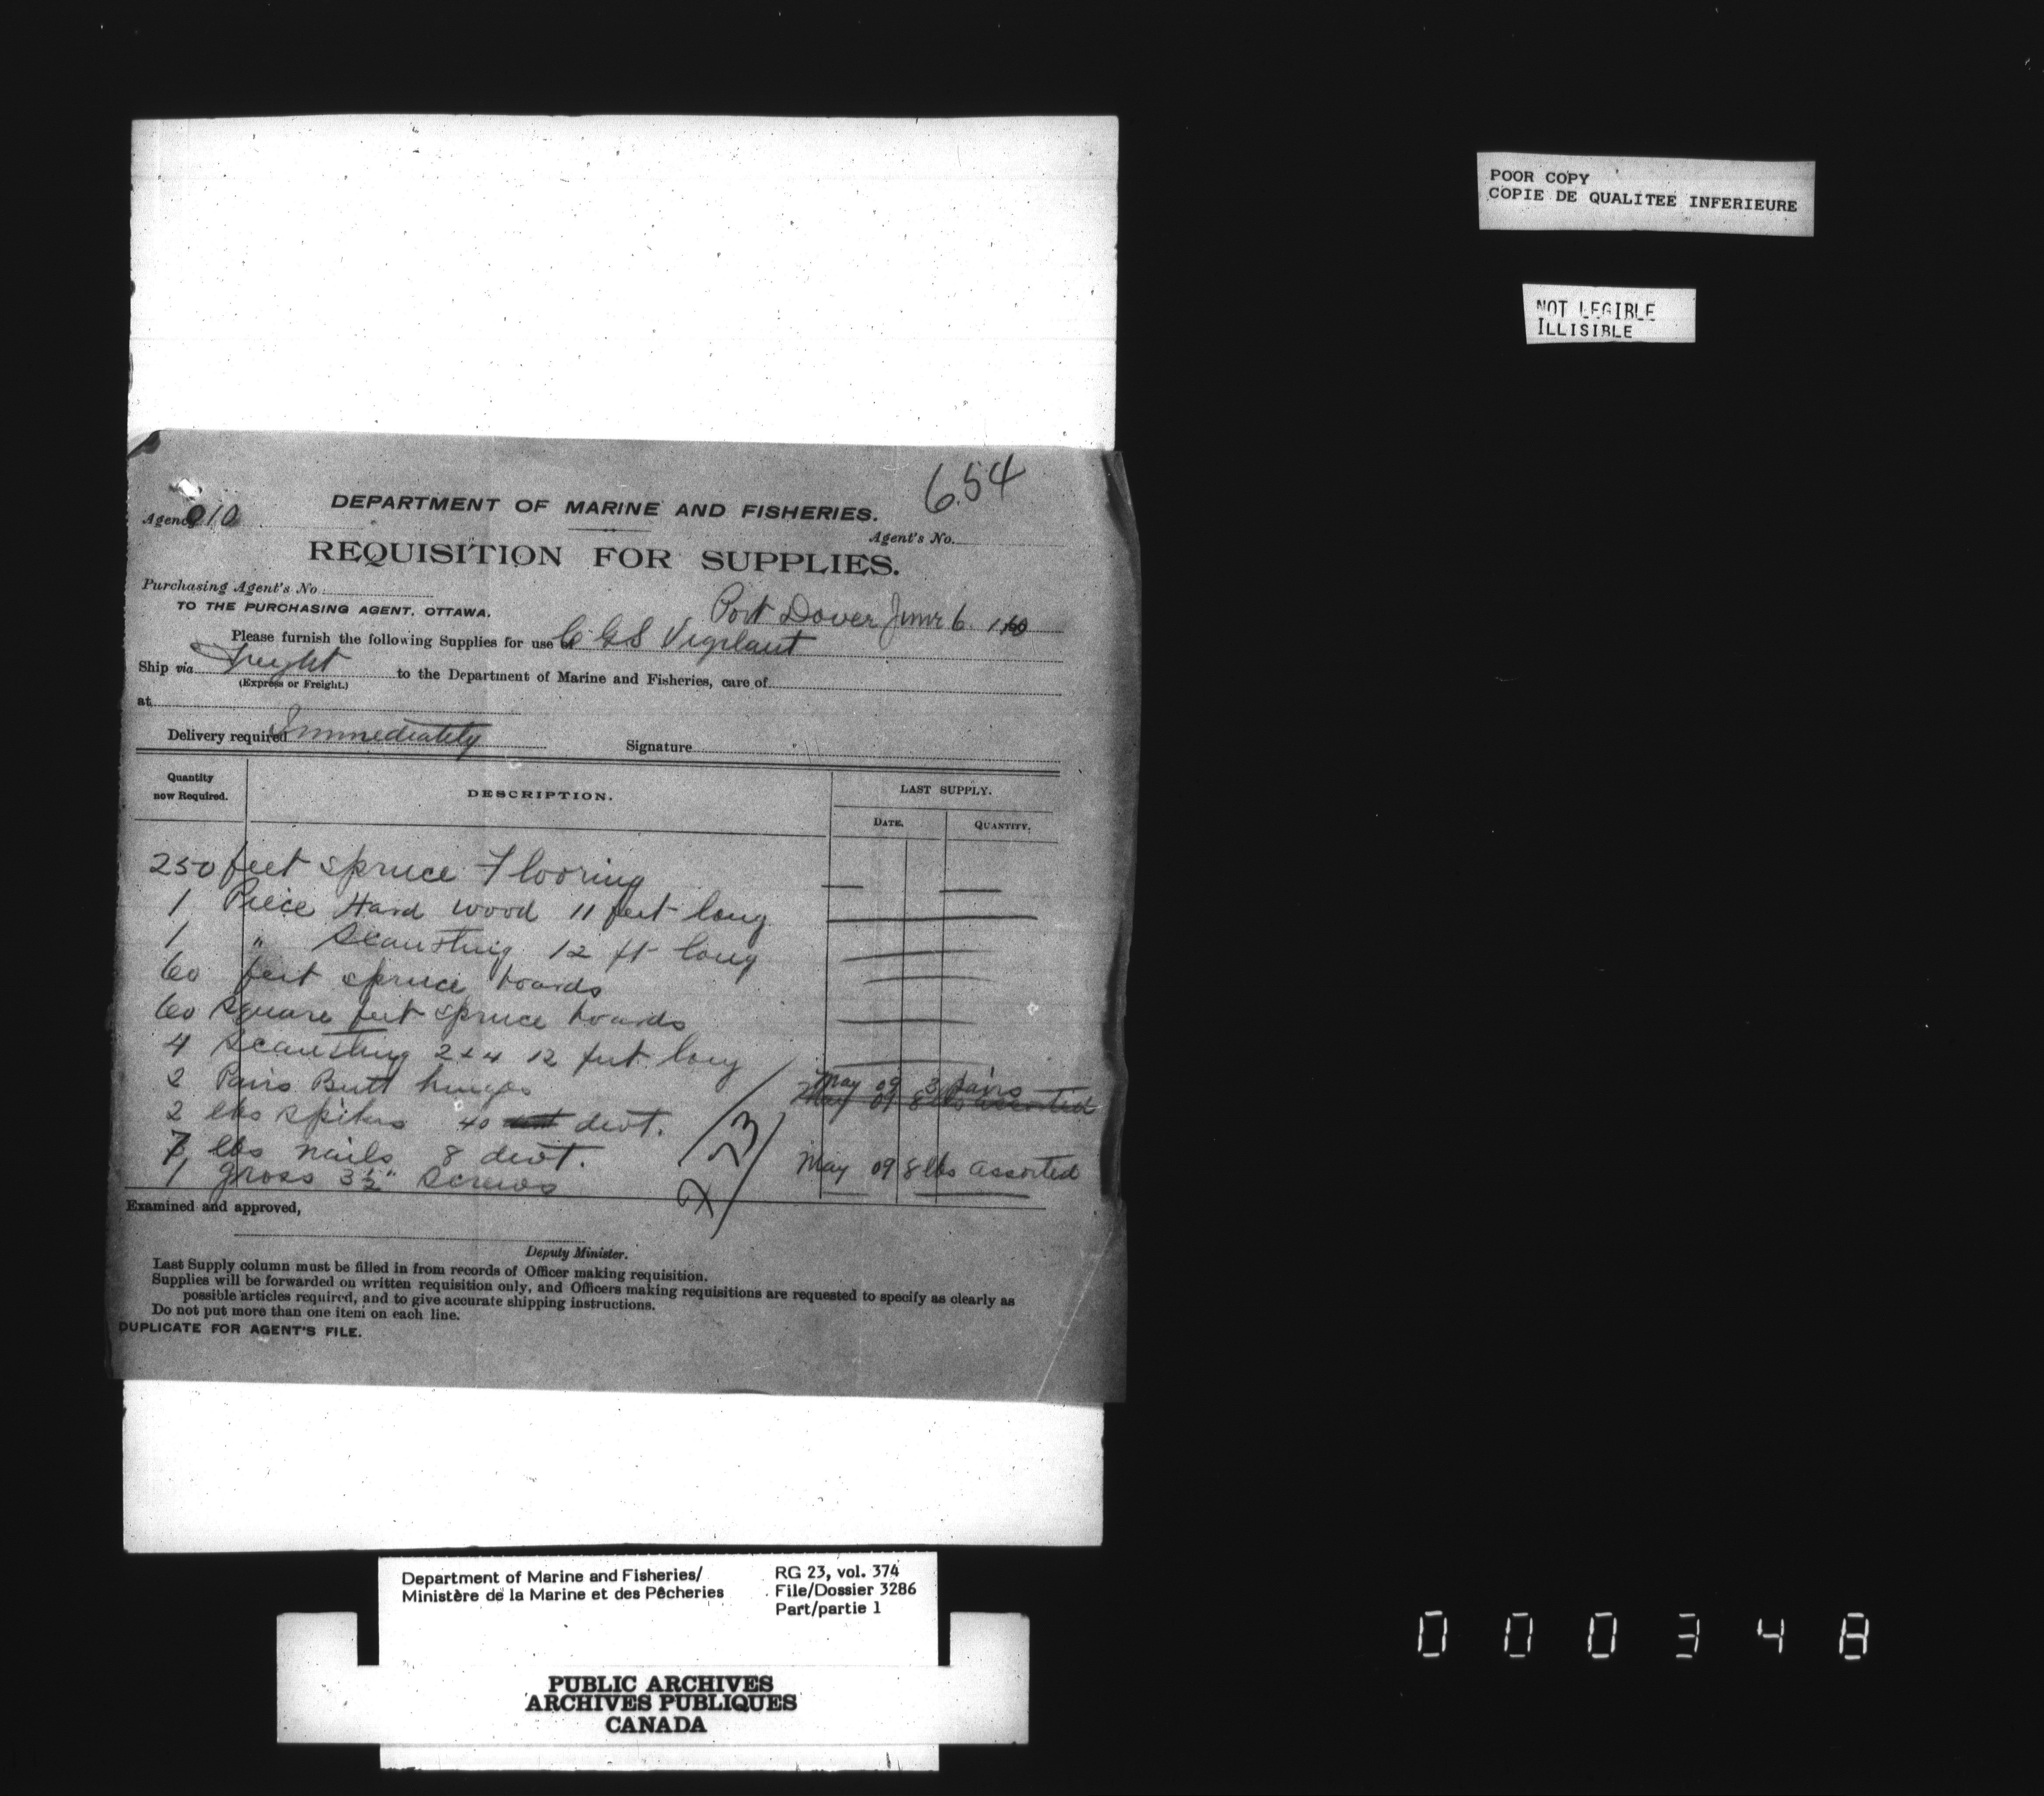 POOR COPY
COPIE DE QUALITEE INFERIEURE
NOT LEGIBLE
ILLISIBLE
654
DEPARTMENT OF MARINE AND FISHERIES.
Agency 010
Agent's No.
REQUISITION FOR SUPPLIES.
Purchasing Agent's No.
TO THE PURCHASING AGENT, OTTAWA.
Port Dover June 6 1910
Please furnish the following Supplies for use of C G S Vigilant
Ship via Freight to the Department of Marine and Fisheries, care of
(Express or Freight.)
at
Delivery required Immediately Signature
Quantity now Required. DESCRIPTION. LAST SUPPLY.
DATE. QUANTITY.
250 feet spruce Flooring — —
1 Piece Hard wood 11 feet long
1 " Scantling 12 ft long
60 feet spruce boards
60 square feet spruce boards
4 Scantling 2 x 4 12 feet long
2 Pairs Butt hinges May 09 3 pairs
2 lbs spikes 40 dwt. May 09 8 lbs assorted
7 lbs nails 8 dwt. May 09 8 lbs assorted
1 gross 3½" Screws
23
Examined and approved,
Deputy Minister.
Last Supply column must be filled in from records of Officer making requisition.
Supplies will be forwarded on written requisition only, and Officers making requisitions are requested to specify as clearly as
possible articles required, and to give accurate shipping instructions.
Do not put more than one item on each line.
DUPLICATE FOR AGENT'S FILE.
Department of Marine and Fisheries/ RG 23, vol. 374
Ministère de la Marine et des Pêcheries File/Dossier 3286
Part/partie 1
PUBLIC ARCHIVES
ARCHIVES PUBLIQUES
CANADA
000348